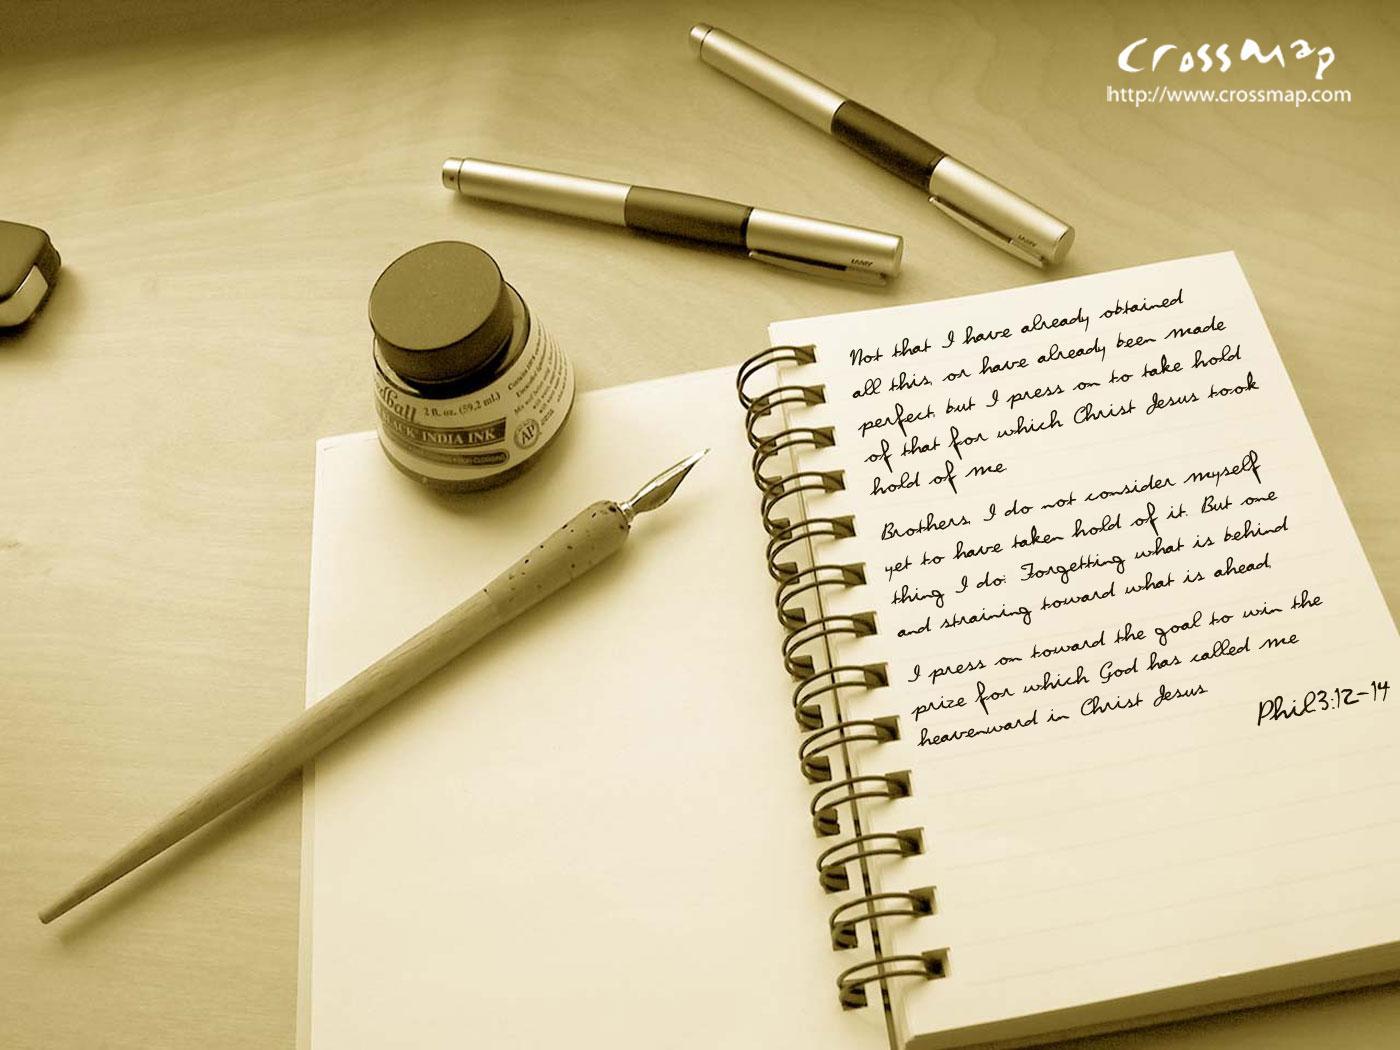 crossmap
http://www.crossmap.com
LAMY
LAMY
2 fl. oz. (59.2 mL)
BLACK INDIA INK
AP
Not that I have already obtained
all this, or have already been made
perfect, but I press on to take hold
of that for which Christ Jesus took
hold of me
Brothers, I do not consider myself
yet to have taken hold of it. But one
thing I do: Forgetting what is behind
and straining toward what is ahead,
I press on toward the goal to win the
prize for which God has called me
heavenward in Christ Jesus
Phil 3:12-14